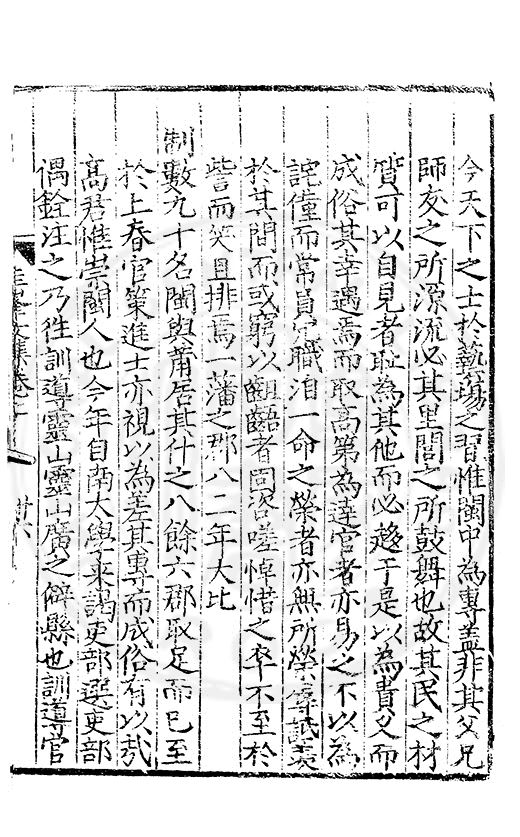 今天下之士於藝場之習惟閩中為專蓋非其父兄
師友之所源流必其里閭之所鼓舞也故其民之材
質可以自見者恥為其他而必趨于是以為貴父而
成俗其幸遇焉而取高第為達官者亦易之不以為
詫僮而常員宂職洎一命之榮者亦無所榮辱訿美
於其間而或窮以齟齬者固咨嗟悼惜之卒不至於
訾而笑且排焉一藩之郡八二年大比
制數九十名閩與莆居其什之八餘六郡取足而已至
於上春官策進士亦視以為差其專而成俗有以哉
高君惟崇閩人也今年自南大學来謁吏部選吏部
偶銓注之乃徃訓導靈山靈山廣之僻縣也訓導官
文集卷之
廿六